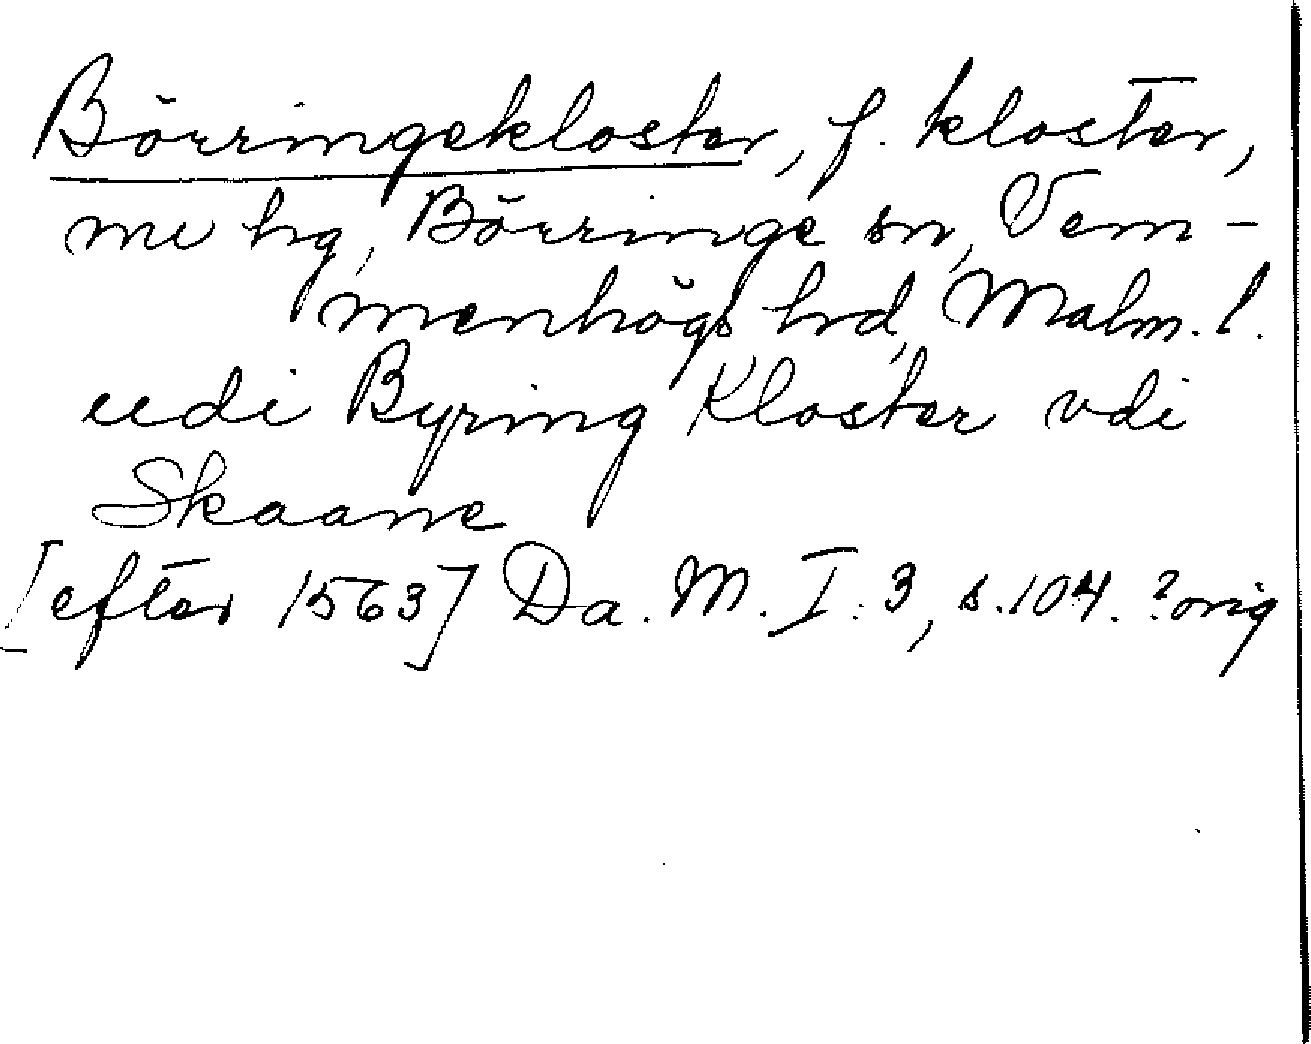 Börringekloster, f. kloster,
nu hg, Börringe sn, Vem-
menhögs hrd, Malm. l.
udi Byring Kloster vdi
Skaane
[efter 1563] Da. M. I: 3, s. 104. ? orig